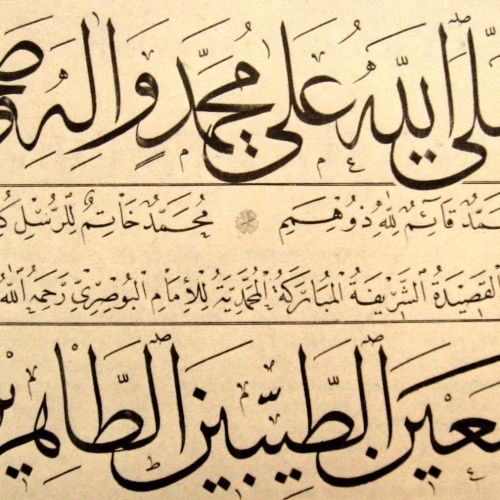 لَّى اللّٰهُ عَلَى مُحَمَّدٍ وَاٰلِهِ
مَّدٌ قَائِمٌ لِلّٰهِ ذُو هِمَمِ مُحَمَّدٌ خَاتِمٌ لِلرُّسْلِ كُ
الْقَصِيدَةُ الشَّرِيفَةُ الْمُبَارَكَةُ الْمُحَمَّدِيَّةُ لِلْإِمَامِ الْبُوصِرِيِّ رَحِمَهُ اللّٰهُ
مَعِينَ الطَّيِّبِينَ الطَّاهِرِينَ